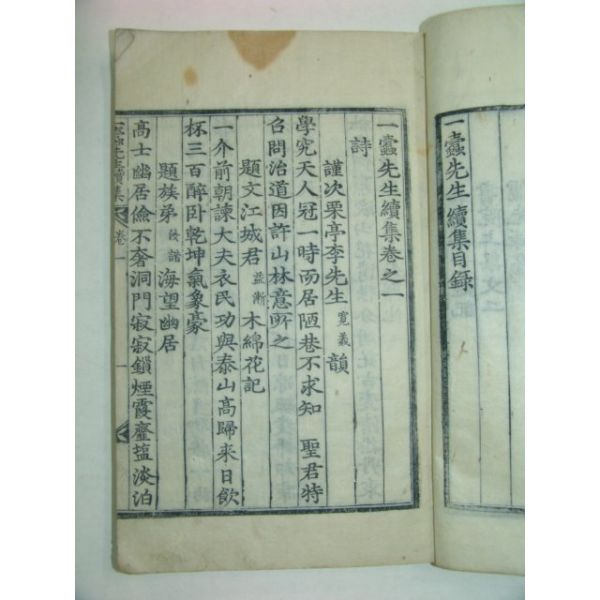 一蠹先生續集目錄
一蠹先生續集卷之一
詩
謹次栗亭李先生寬義韻
學究天人冠一時而居陋巷不求知 聖君特
召問治道因許山林意所之
題文江城君益漸木綿花記
一介前朝諫大夫衣民功與泰山高歸來日飲
杯三百醉卧乾坤氣象豪
題族弟汝諧海望幽居
高士幽居儉不奢洞門寂寂鎖煙霞虀塩淡泊
一蠹先生續集 卷一